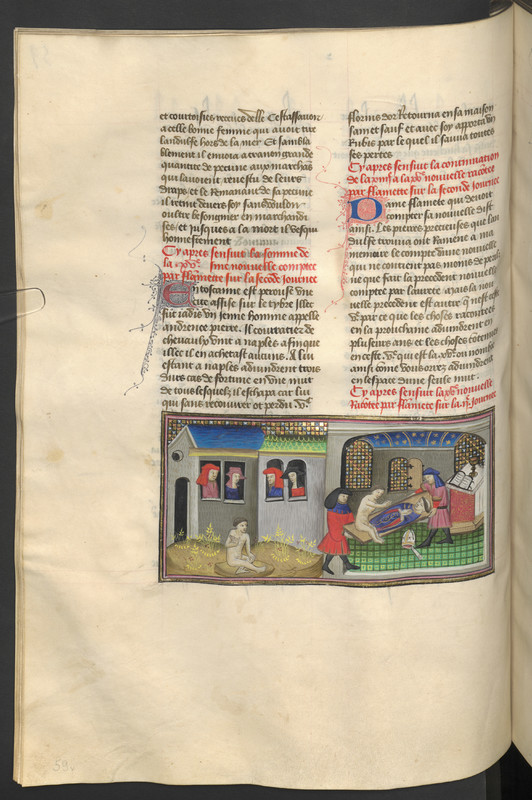 et courtoisies receues delle Ceste assauoir
a celle bonne femme qui auoit tire
landulfe hors de la mer Et sambla
blement il enuoia a tranon grande
quantite de pecune aux marchās
qui lauoient reuestu de leurs
draps et le Remanant de sa pecune
il retint deuers soy sans vouloir
oultre besongnier en marchandi
ses et iusques a la mort il vesqui
honnestement
Cy apres sensuit la somme de
la nouuelle comptee
par flamette sur la seconde Journee
En toscanne est perouse vne
cite assise sur le tybre Illec
fut iadis vn ienne homme appelle
andrence pierre Il couratier de
cheuaulx vint a naples afin que
illec il en achetast aucuns A lui
estant a naples aduindrent trois
durs cas de fortune en vne nuit
de tous lesquelz il eschapa car lui
qui sans recouurer ot perdu
florins dor Retourna en sa maison
sain et sauf et auec soy apporta vn
Rubis par le quel il sauua toutes
ses pertes
Cy apres sensuit la continuation
de la nouuelle racōtee
par flamette sur la seconde Journee
Dame flamete qui deuoit
compter sa nouuelle dist
ainsi Les pierres precieuses que lan
dulfe trouua ont Ramene a ma
memoire le compte dune nouuelle
qui ne contient pas moins de perilz
que fait la precedent nouuelle
comptee par laurete mais la nou
uelle precedent est autre que nest ceste
par ce que les choses racontees
en la prouchaine aduindrent en
plusieurs ans et les choses contenues
en ceste qui est la
ainsi come vous orrez aduindrent
en lespace dune seule nuit
Cy apres sensuit la nouuelle
Racōtee par flamette sur la Journee
59